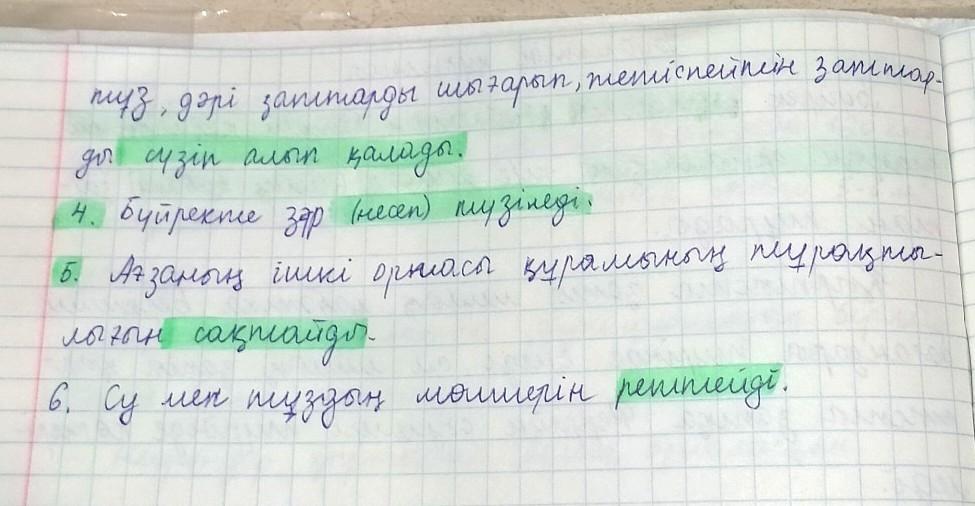 тұз, дәрі заттарды шығарып, жетіспейтін заттар-
ды сүзіп алып қалады.
4. Бүйректе зәр (несеп) түзіледі.
5. Ағзаның ішкі ортасы құрамының тұрақты-
лығын сақтайды.
6. Су мен тұздың мөлшерін реттейді.